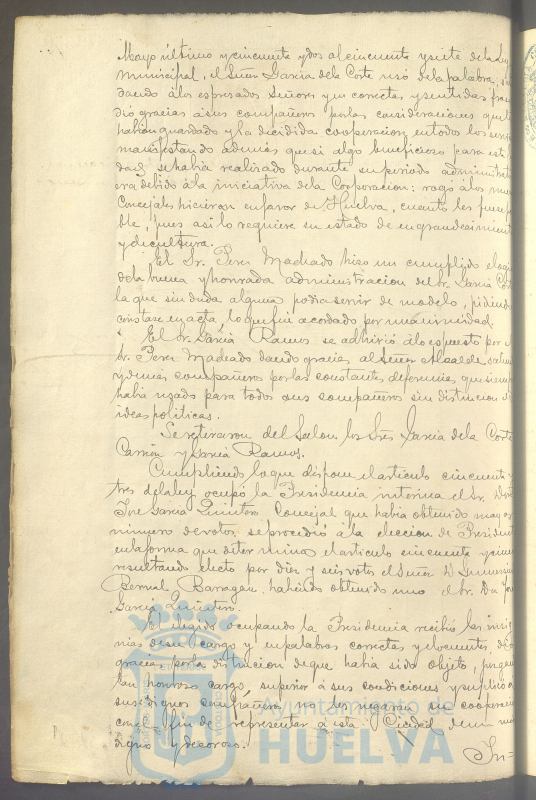 Mayo último y cincuenta y dos al cincuenta y siete de la Ley
municipal, el Señor Garcia de la Corte usó de la palabra,
dando á los espresados Señores y en correctas y sentidas fra
dió gracias á sus compañeros por las consideraciones que le
habian guardado y la decidida cooperacion en todos los servi
manifestando además que si algo beneficioso para est
dad se habia realizado durante su periodo administrat
era debido á la iniciativa de la Corporacion: rogó á los nue
Concejales hicieran en favor de Huelva, cuanto les fuese p
ble, pues asi lo requiere su estado de engrandecimient
y de cultura.
El Sr. Perez Machado hizo un cumplido elogi
de la buena y honrada administracion del Sr. Garcia Cor
la que sin duda alguna podia servir de modelo, pidiendo
constase en acta, lo que fué acordado por unanimidad.
El Sr. Garcia Ramos se adhirió á lo espuesto por e
Sr. Perez Machado dando gracias al Señor Alcalde
y demas compañeros por las constantes deferencias que siemp
habia usado para todos sus compañeros sin distincion de
ideas politicas.
Se retiraron del Salon los Sres Garcia de la Corte
Carrion y Garcia Ramos.
Cumpliendo lo que dispone el articulo cincuenta y
tres de la ley ocupó la Presidencia interina el Sr. Don
José Garcia Quintero Concejal que habia obtenido mayor
número de votos, se procedió á la eleccion de President
en la forma que determina el articulo cincuenta y
resultando electo por diez y seis votos el Señor D.
Bernal Barragan, habiendo obtenido uno el Sr. Don Jo
Garcia Quintero.
El elegido ocupando la Presidencia recibió las insig
nias de su cargo y en palabras correctas y elocuentes, dió
gracias por la distincion de que habia sido objeto, porque
tan honroso cargo, superior á sus condiciones y suplicó á
sus dignos compañeros no les negaran su cooperacion
con el fin de representar á esta Ciudad de un mo
digno y decoroso.
In=
Ayuntamiento de
HUELVA